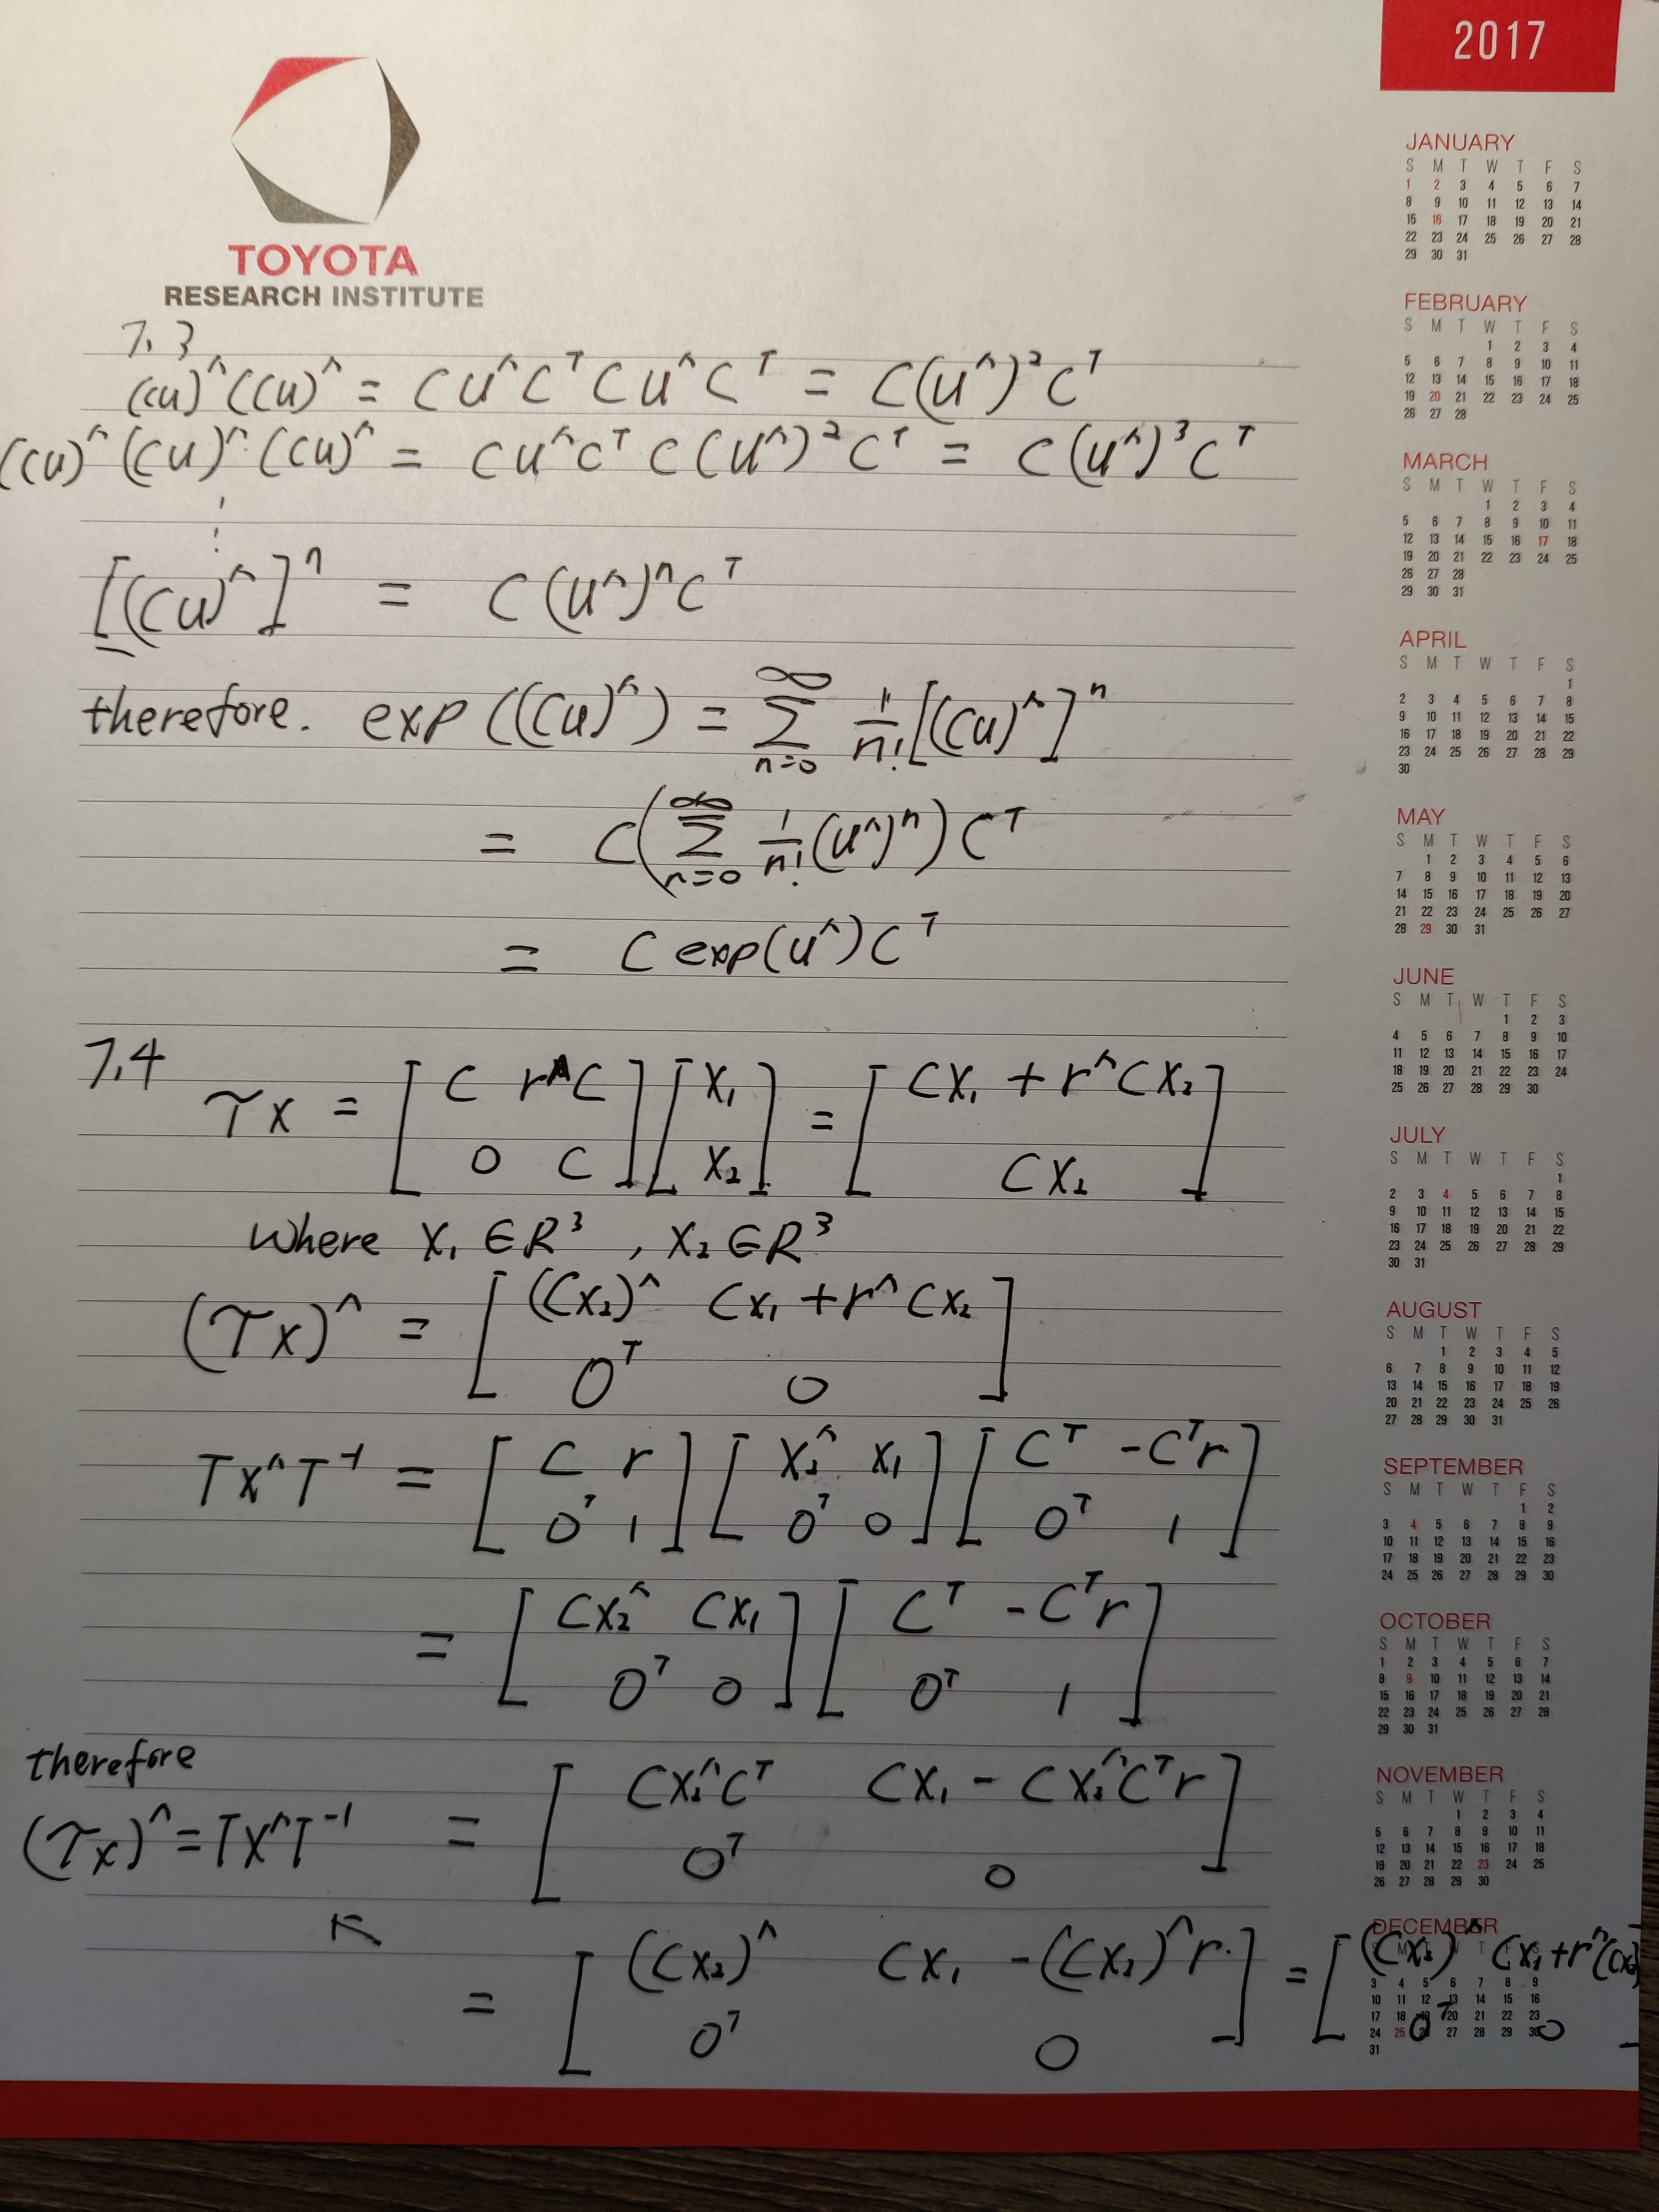 2017
TOYOTA
RESEARCH INSTITUTE
7.3
(Cu)^ (Cu)^ = C u^ C^T C u^ C^T = C(u^)² C^T
(Cu)^ (Cu)^ (Cu)^ = C u^ C^T C (u^)² C^T = C (u^)³ C^T
⋮
[(Cu)^]^n = C (u^)^n C^T
therefore. exp ((Cu)^) = ∑_{n=0}^∞ 1/n! [(Cu)^]^n
= C(∑_{n=0}^∞ 1/n! (u^)^n) C^T
= C exp(u^) C^T
7.4
𝒯x = [C r^C; 0 C] [x₁; x₂] = [Cx₁ + r^Cx₂; Cx₂]
where x₁ ∈ R³, x₂ ∈ R³
(𝒯x)^ = [(Cx₂)^ Cx₁ + r^Cx₂; 0^T 0]
Tx^T⁻¹ = [C r; 0^T 1] [x₂^ x₁; 0^T 0] [C^T -C^Tr; 0^T 1]
= [Cx₂^ Cx₁; 0^T 0] [C^T -C^Tr; 0^T 1]
therefore
(𝒯x)^ = Tx^T⁻¹ = [Cx₂^C^T Cx₁ - Cx₂^C^Tr; 0^T 0]
= [(Cx₂)^ Cx₁ - (Cx₂)^r; 0^T 0] = [(Cx₂)^ Cx₁ + r^(Cx₂); 0^T 0]
JANUARY
S M T W T F S
1 2 3 4 5 6 7
8 9 10 11 12 13 14
15 16 17 18 19 20 21
22 23 24 25 26 27 28
29 30 31
FEBRUARY
S M T W T F S
1 2 3 4
5 6 7 8 9 10 11
12 13 14 15 16 17 18
19 20 21 22 23 24 25
26 27 28
MARCH
S M T W T F S
1 2 3 4
5 6 7 8 9 10 11
12 13 14 15 16 17 18
19 20 21 22 23 24 25
26 27 28
29 30 31
APRIL
S M T W T F S
1
2 3 4 5 6 7 8
9 10 11 12 13 14 15
16 17 18 19 20 21 22
23 24 25 26 27 28 29
30
MAY
S M T W T F S
1 2 3 4 5 6
7 8 9 10 11 12 13
14 15 16 17 18 19 20
21 22 23 24 25 26 27
28 29 30 31
JUNE
S M T W T F S
1 2 3
4 5 6 7 8 9 10
11 12 13 14 15 16 17
18 19 20 21 22 23 24
25 26 27 28 29 30
JULY
S M T W T F S
1
2 3 4 5 6 7 8
9 10 11 12 13 14 15
16 17 18 19 20 21 22
23 24 25 26 27 28 29
30 31
AUGUST
S M T W T F S
1 2 3 4 5
6 7 8 9 10 11 12
13 14 15 16 17 18 19
20 21 22 23 24 25 26
27 28 29 30 31
SEPTEMBER
S M T W T F S
1 2
3 4 5 6 7 8 9
10 11 12 13 14 15 16
17 18 19 20 21 22 23
24 25 26 27 28 29 30
OCTOBER
S M T W T F S
1 2 3 4 5 6 7
8 9 10 11 12 13 14
15 16 17 18 19 20 21
22 23 24 25 26 27 28
29 30 31
NOVEMBER
S M T W T F S
1 2 3 4
5 6 7 8 9 10 11
12 13 14 15 16 17 18
19 20 21 22 23 24 25
26 27 28 29 30
DECEMBER
3 4 5 6 7 8 9
10 11 12 13 14 15 16
17 18 20 21 22 23
24 25 27 28 29 30
31